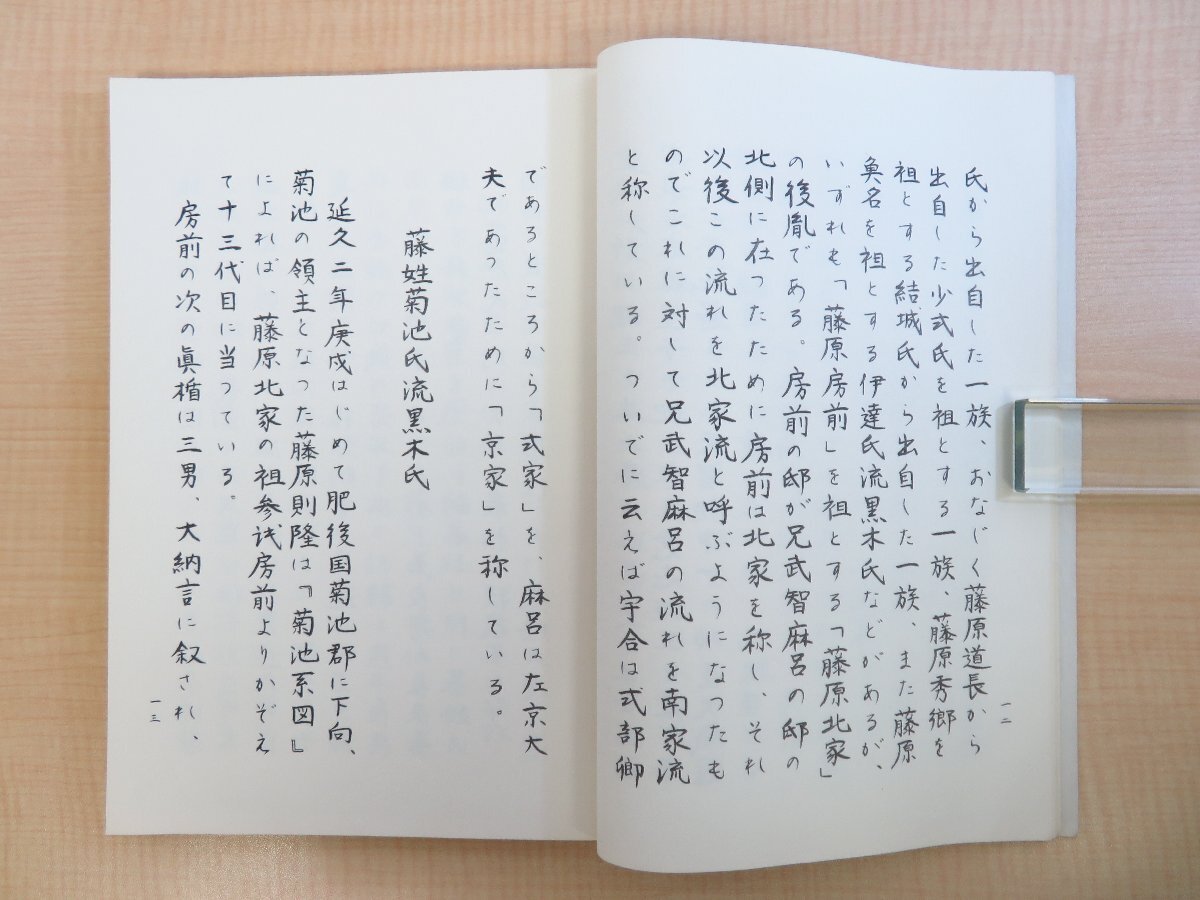 氏から出自した一族、おなじく藤原道長から
出自した少弍氏を祖とする一族、藤原秀郷を
祖とする結城氏から出自した一族、また藤原
魚名を祖とする伊達氏流黒木氏などがあるが、
いずれも「藤原房前」を祖とする「藤原北家」
の後胤である。房前の邸が兄武智麻呂の邸の
北側に在ったために房前は北家を称し、それ
以後この流れを北家流と呼ぶようになったも
のでこれに対して兄武智麻呂の流れを南家流
と称している。ついでに云えば宇合は式部卿
一二
であるところから「式家」を、麻呂は左京大
夫であったために「京家」を称している。
藤姓菊池氏流黒木氏
延久二年庚戌はじめて肥後国菊池郡に下向、
菊池の領主となった藤原則隆は『菊池系図』
によれば、藤原北家の祖参议房前よりかぞえ
て十三代目に当っている。
房前の次の眞楯は三男、大納言に叙され、
一三